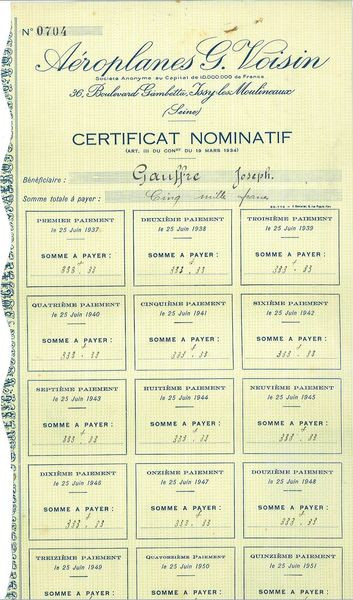 N° 0704
Aéroplanes G. Voisin
Société Anonyme au Capital de 10.000.000 de Francs
36, Boulevard Gambetta, Issy-les-Moulineaux
(Seine)
CERTIFICAT NOMINATIF
(ART. III DU CONCᵗ DU 19 MARS 1934)
Bénéficiaire : Gauffre Joseph.
Somme totale à payer : Cinq mille francs
PREMIER PAIEMENT DEUXIÈME PAIEMENT TROISIÈME PAIEMENT
le 25 Juin 1937 le 25 Juin 1938 le 25 Juin 1939
SOMME A PAYER : SOMME A PAYER : SOMME A PAYER :
333.33 333.33 333.33
QUATRIÈME PAIEMENT CINQUIÈME PAIEMENT SIXIÈME PAIEMENT
le 25 Juin 1940 le 25 Juin 1941 le 25 Juin 1942
SOMME A PAYER : SOMME A PAYER : SOMME A PAYER :
333.33 333.33 333.33
SEPTIÈME PAIEMENT HUITIÈME PAIEMENT NEUVIÈME PAIEMENT
le 25 Juin 1943 le 25 Juin 1944 le 25 Juin 1945
SOMME A PAYER : SOMME A PAYER : SOMME A PAYER :
333.33 333.33 333.33
DIXIÈME PAIEMENT ONZIÈME PAIEMENT DOUZIÈME PAIEMENT
le 25 Juin 1946 le 25 Juin 1947 le 25 Juin 1948
SOMME A PAYER : SOMME A PAYER : SOMME A PAYER :
333.33 333.33 333.33
TREIZIÈME PAIEMENT QUATORZIÈME PAIEMENT QUINZIÈME PAIEMENT
le 25 Juin 1949 le 25 Juin 1950 le 25 Juin 1951